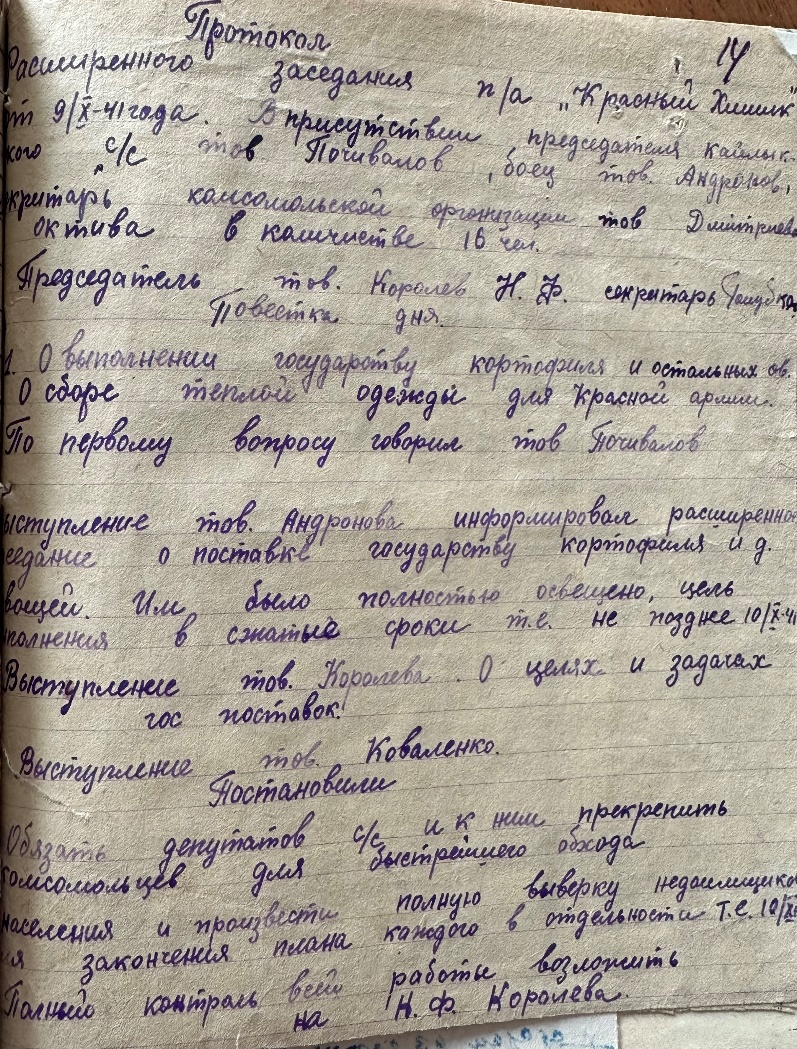 Протокол
14
Расширенного заседания п/а „Красный Химик"
от 9/X-41 года. В присутствии председателя
ского с/с тов Почивалов, боец тов. Андронов,
екритарь комсомольской организации тов Дмитриева
октива в каличистве 16 чел.
Председатель тов. Королев Н. Ф. секритарь
Повестка дня.
1. О выполнении государству кортофиля и остальных ов.
О сборе теплой одежды для Красной армии.
По первому вопросу говорил тов Почивалов
ыступление тов. Андронова информировал расширенное
седание о поставке государству кортофиля и д.
вощей. Им было полностью освещено, цель
полнения в сжатые сроки т.е. не позднее 10/X-41
Выступление тов. Королева. О целях и задачах
гос поставок.
Выступление тов. Коваленко.
Постановили
Обязать депутатов с/с и к ним прекрепить
комсомольцев для быстрейшего обхода
населения и произвести полную выверку недоимщиков
ия закончения плана каждого в отдельности т.е. 10/X
Полный контроль всей работы возложить
на Н. Ф. Королева.